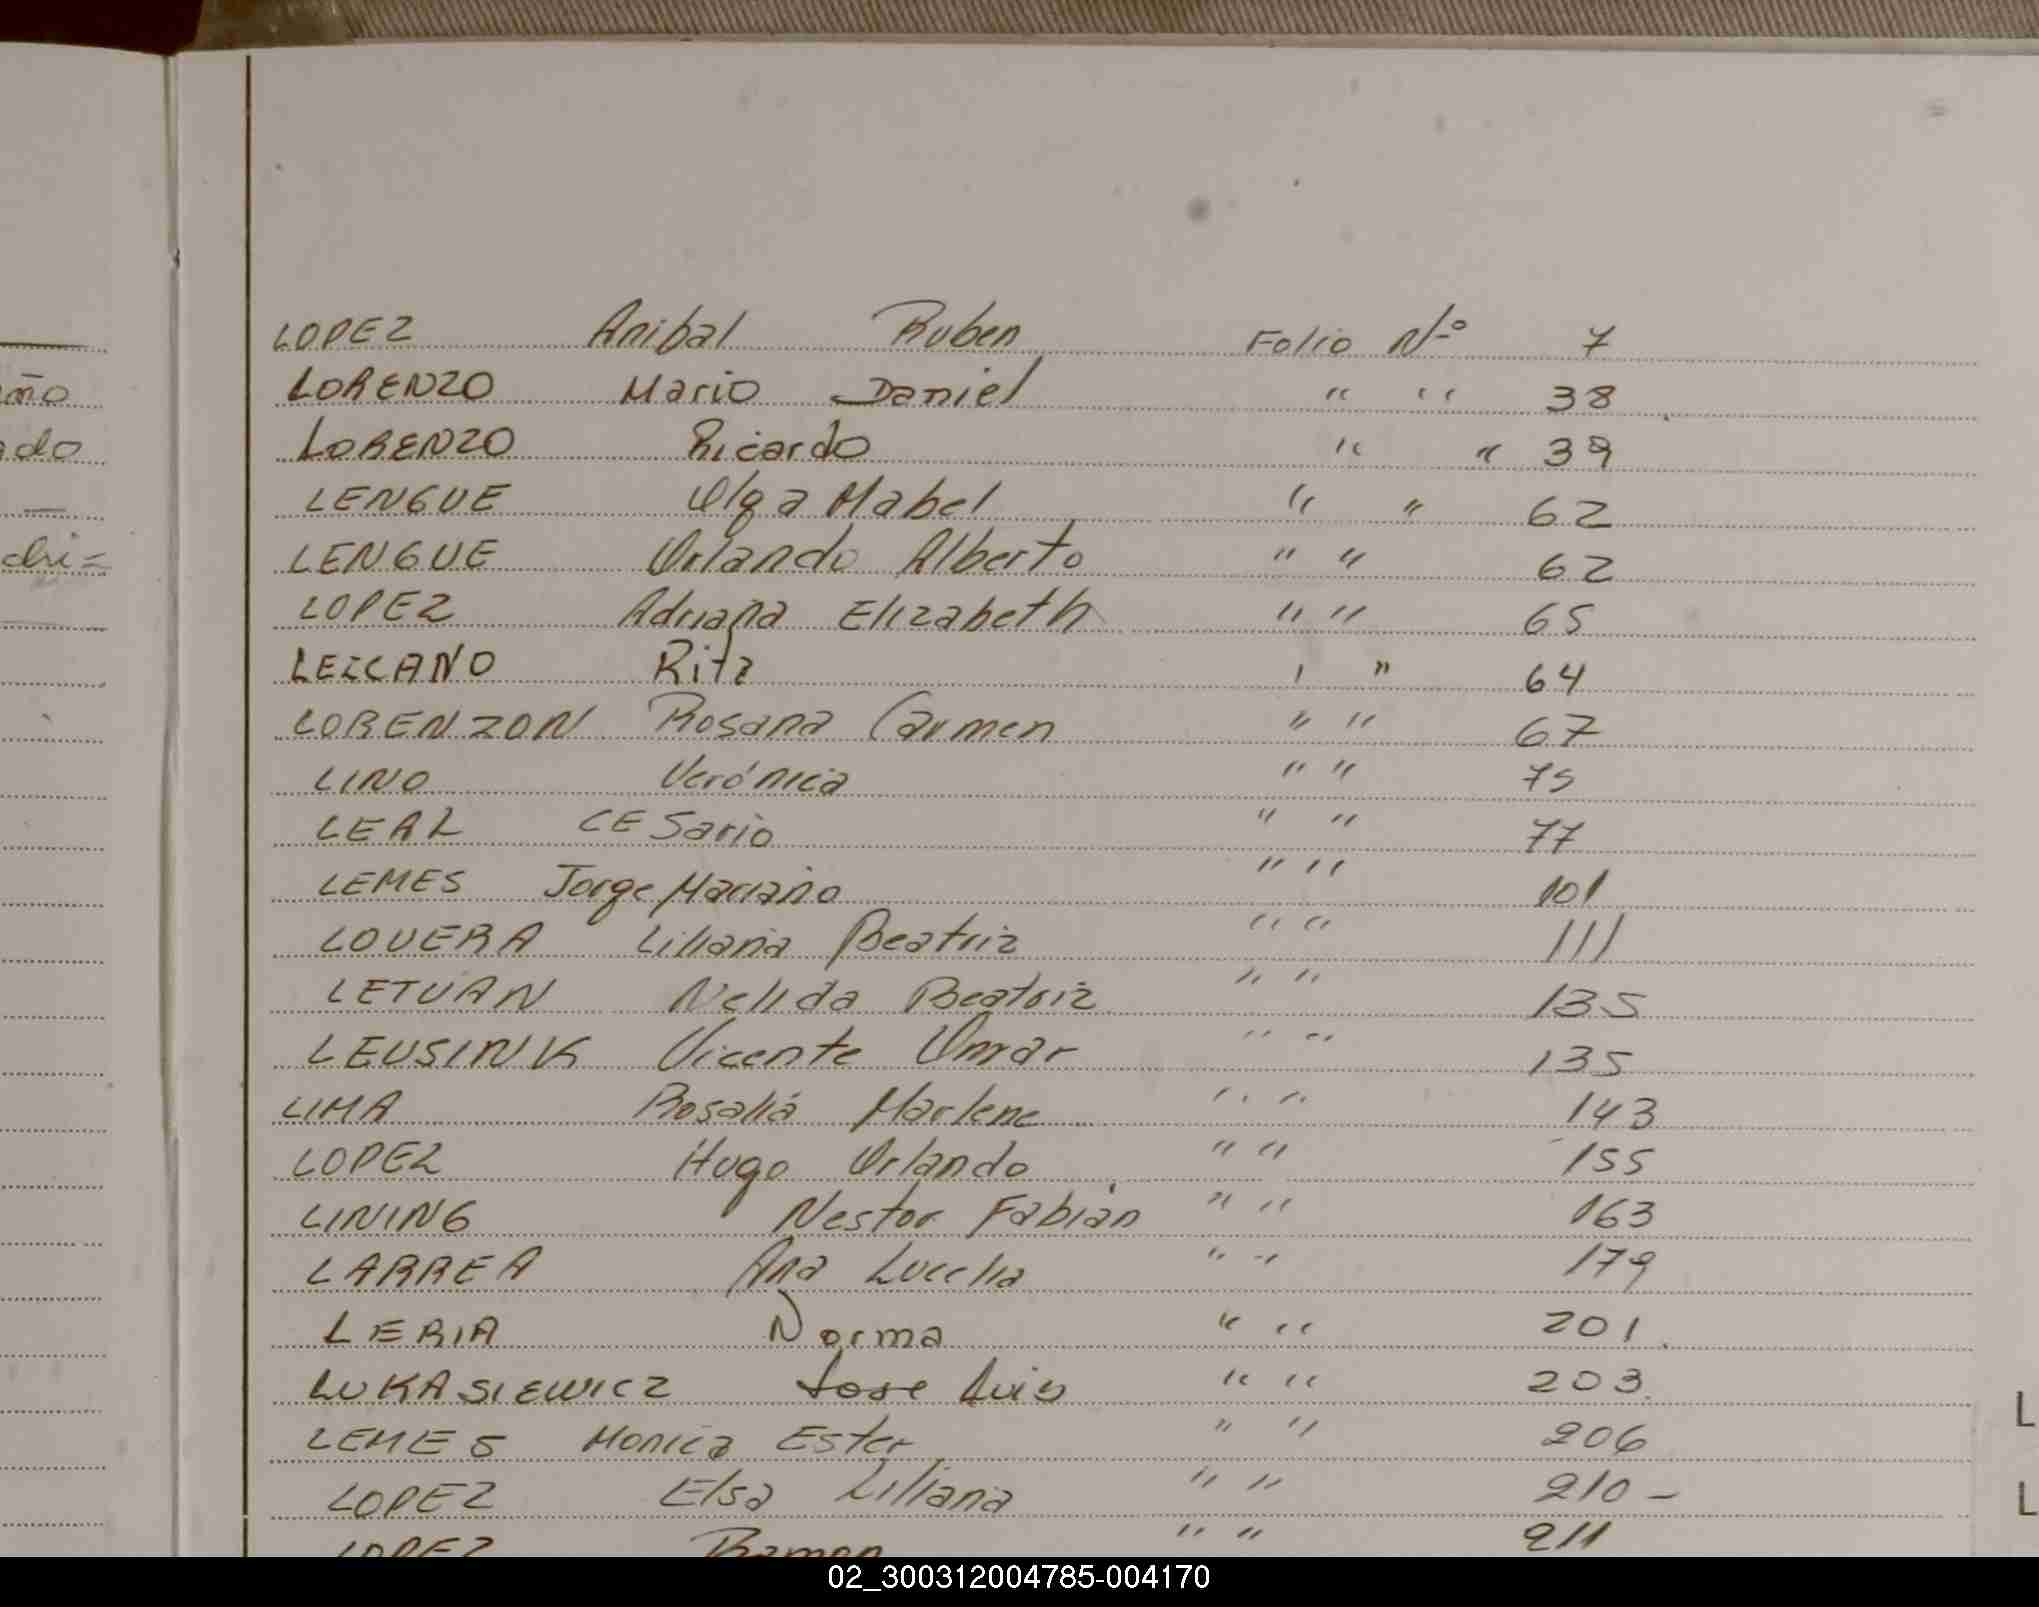 ño
ado
chi=
LOPEZ Anibal Ruben Folio Nº 7
LORENZO Mario Daniel " " 38
LORENZO Ricardo " " 39
LENGUE Olga Mabel " " 62
LENGUE Orlando Alberto " " 62
LOPEZ Adriana Elizabeth " " 65
LEZCANO Rita ' " 64
LORENZON Rosana Carmen " " 67
LINO Verónica " " 75
LEAL CESario " " 77
LEMES Jorge Mariano " " 101
LOVERA Liliana Beatriz " " 111
LETUAN Nelida Beatriz " " 135
LEUSINK Vicente Omar " " 135
LIMA Rosalia Marlene " " 143
LOPEZ Hugo Orlando " " 155
LINING Nestor Fabián " " 163
LARREA Ana Lucelia " " 179
LERIA Norma " " 201.
LUKASIEWICZ Jose Luis " " 203.
LEMES Monica Ester " " 206
LOPEZ Elsa Liliana " " 210 -
LOPEZ Ramon " " 211
L
L
02_300312004785-004170